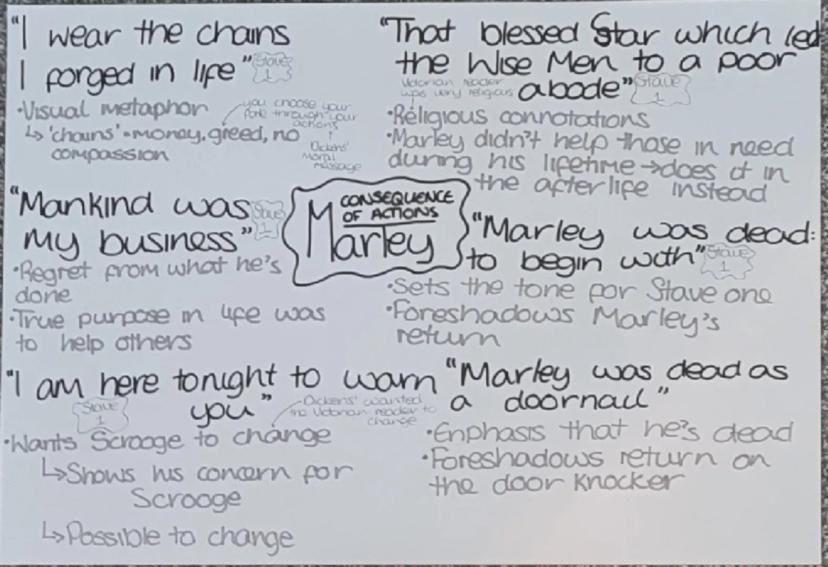 "I wear the chains
I forged in life"
Stave
1
• Visual metaphor
↳ 'chains' = money, greed, no
compassion
you choose your
fate through your
actions
Dickens'
moral
message
"That blessed Star which led
the Wise Men to a poor
abode"
Stave
1
Victorian reader
was very religious
• Religious connotations
• Marley didn't help those in need
during his lifetime → does it in
the afterlife instead
"Mankind was
my business"
Stave
1
• Regret from what he's
done
• True purpose in life was
to help others
CONSEQUENCE
OF ACTIONS
Marley
"Marley was dead:
to begin with"
Stave
1
• Sets the tone for Stave one
• Foreshadows Marley's
return
"I am here tonight to warn
you"
Stave
1
Dickens' wanted
the Victorian reader to
change
• Wants Scrooge to change
↳ Shows his concern for
Scrooge
↳ Possible to change
"Marley was dead as
a doornail"
• Enphasis that he's dead
• Foreshadows return on
the door knocker